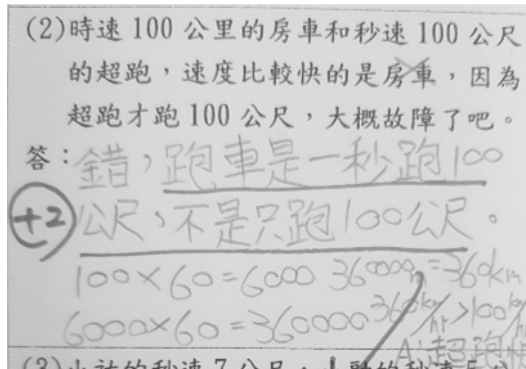 (2)時速 100 公里的房車和秒速 100 公尺
的超跑，速度比較快的是房車，因為
超跑才跑 100 公尺，大概故障了吧。
答：錯，跑車是一秒跑100
+2 公尺，不是只跑100公尺。
100×60=6000 360000m=360km
6000×60=360000 360km/hr>100km/hr
A:超跑快